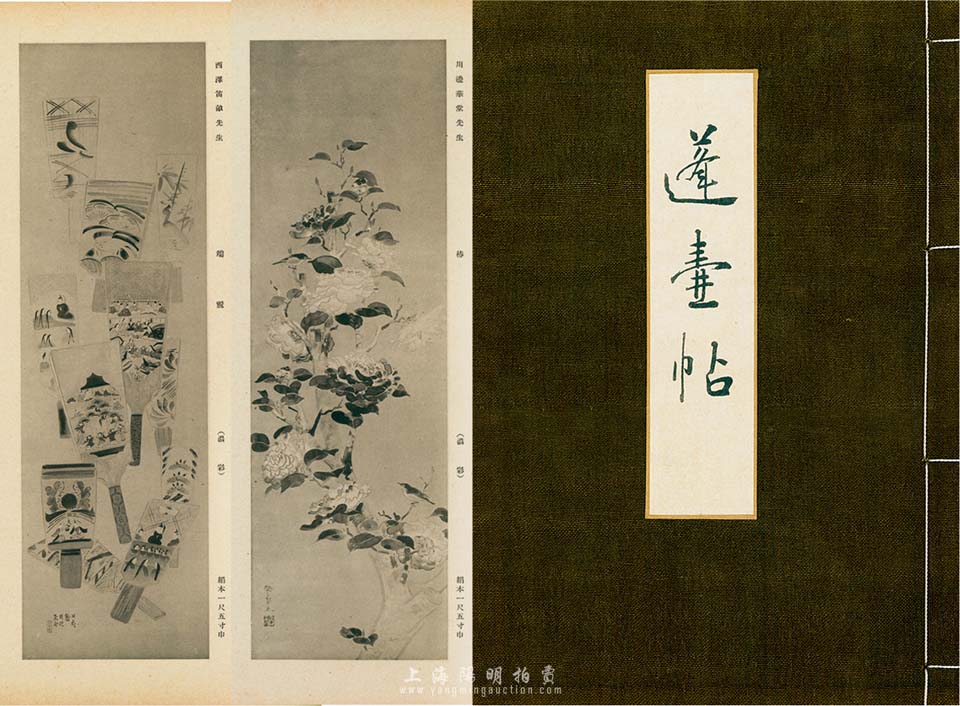 蓬壷帖
川邊華堂先生
椿
(濃彩)
絹本一尺五寸巾
西澤笛畝先生
(濃彩)
絹本一尺五寸巾
上海陽明拍賣
www.yangmingauction.com